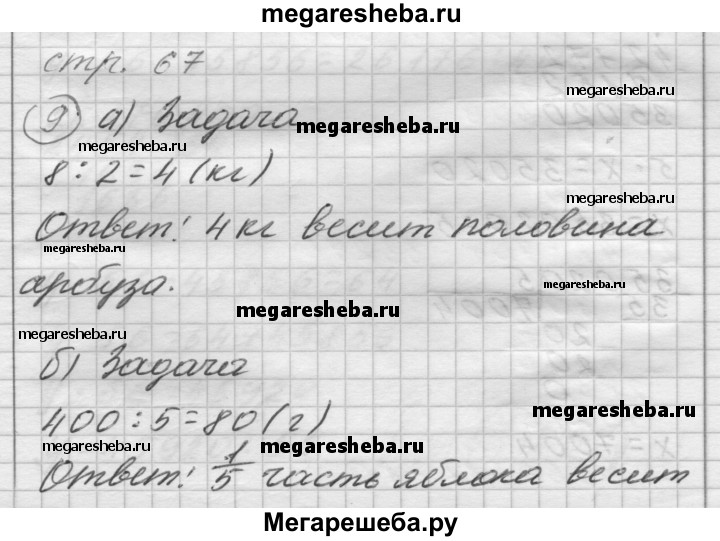 megaresheba.ru
стр. 67
megaresheba.ru
9 а) Задача
megaresheba.ru
megaresheba.ru
8 : 2 = 4 (кг)
megaresheba.ru
Ответ: 4 кг весит половина
megaresheba.ru
арбуза.
megaresheba.ru
megaresheba.ru
megaresheba.ru
б) Задача
400 : 5 = 80 (г)
megaresheba.ru
megaresheba.ru
megaresheba.ru
Ответ: 1/5 часть яблока весит
Мегарешеба.ру